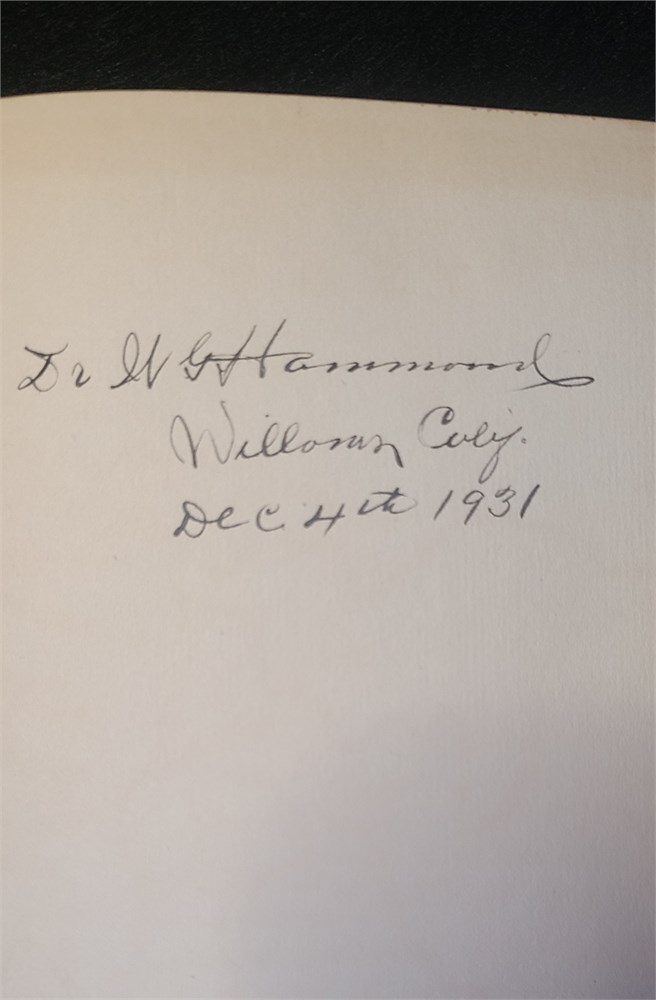 Dr W G Hammond
Willows, Calif.
Dec 4th 1931